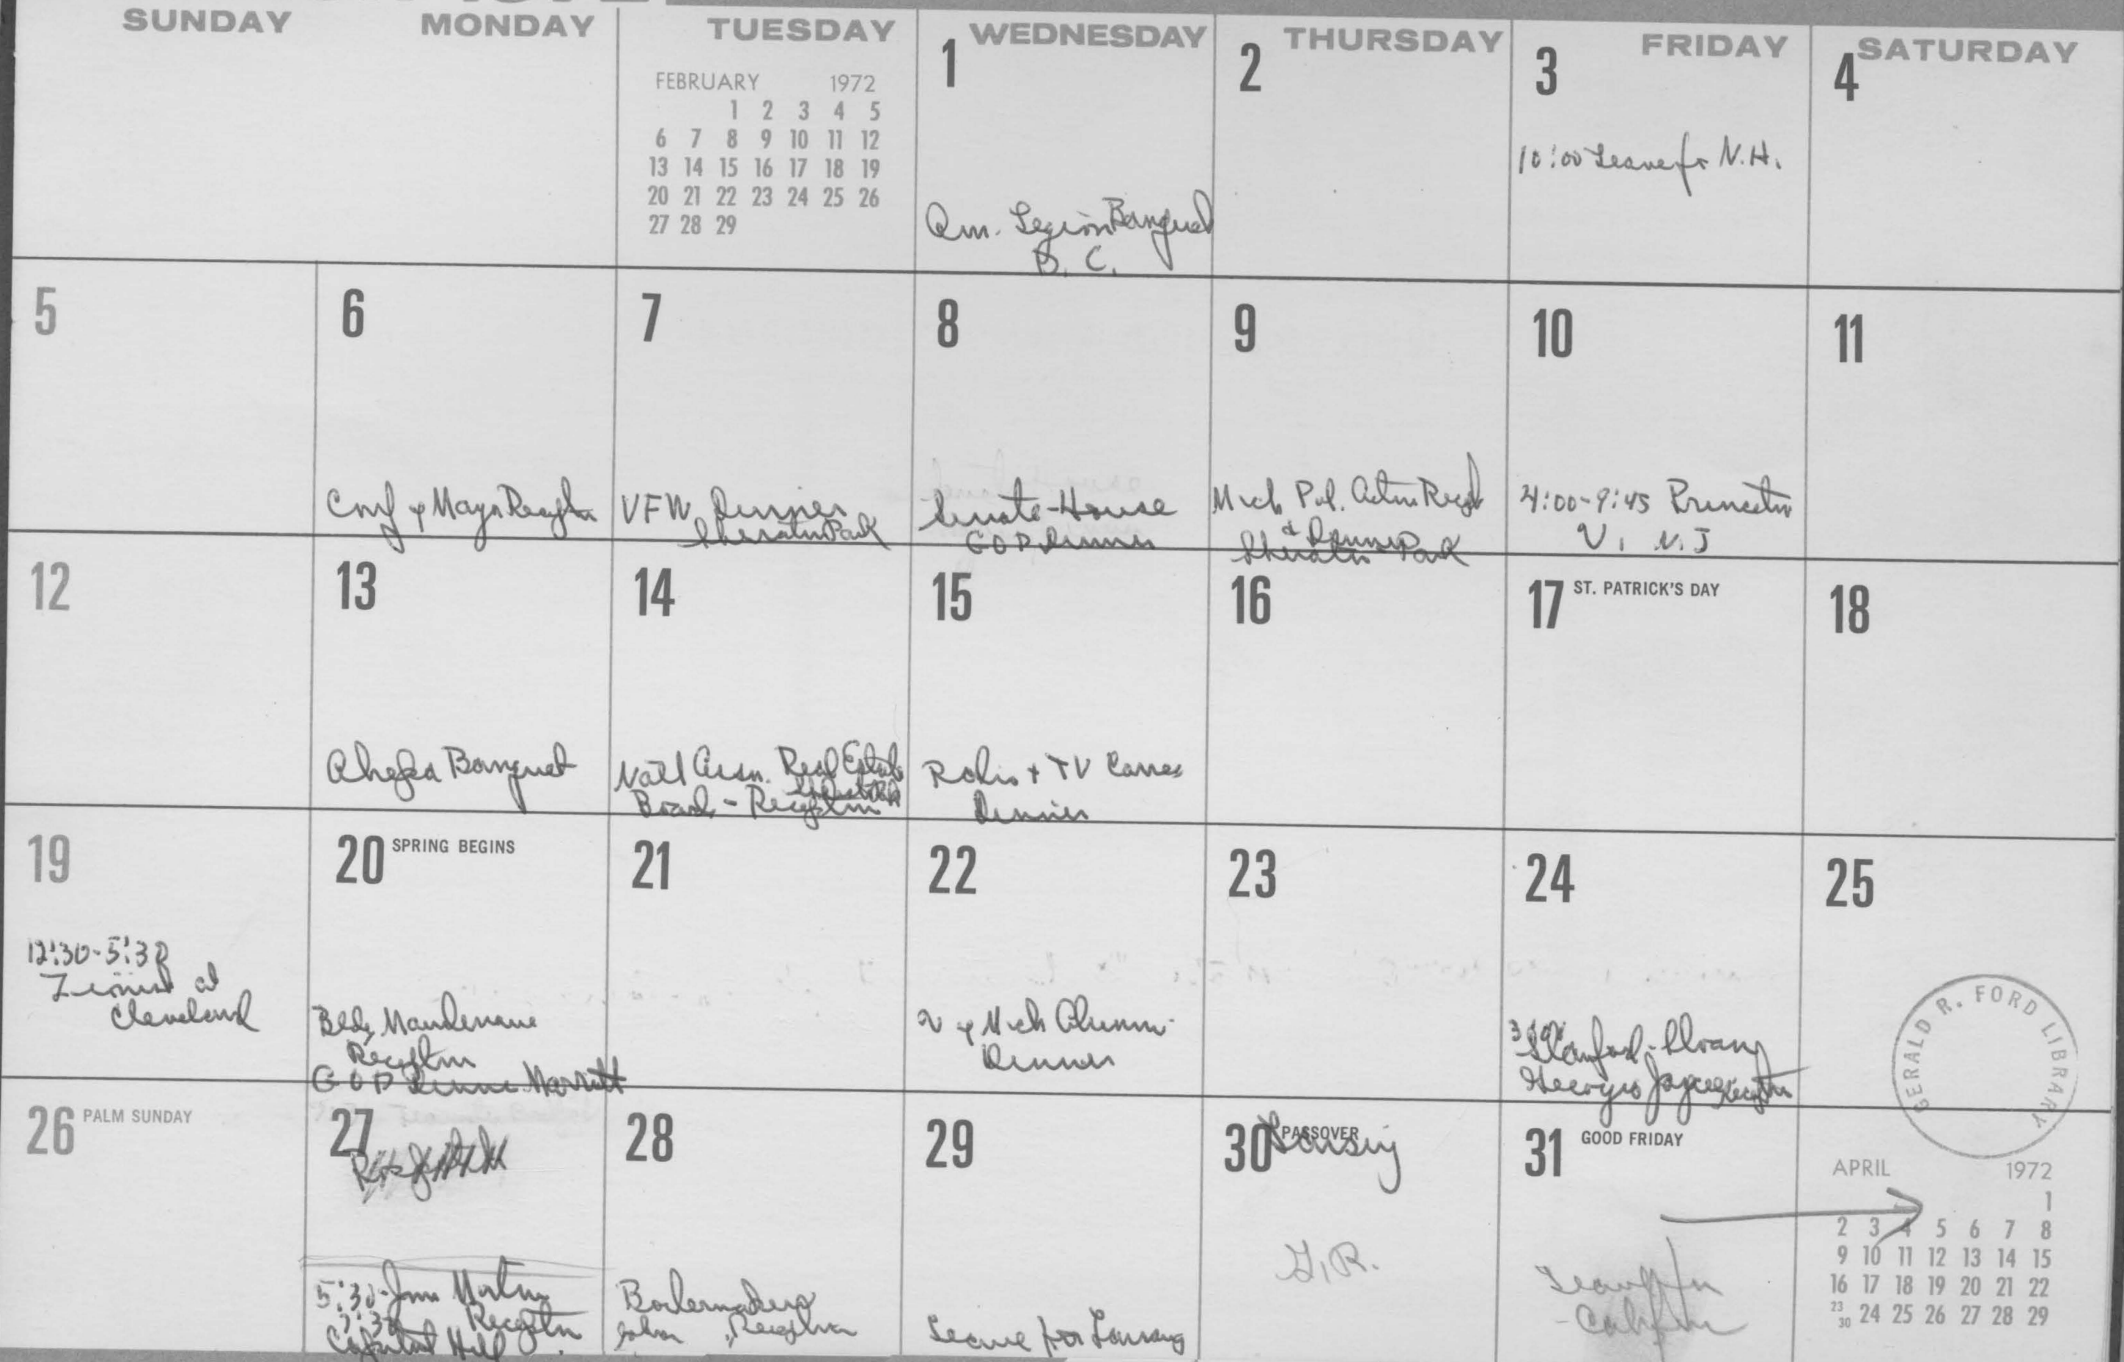 SUNDAY MONDAY TUESDAY WEDNESDAY THURSDAY FRIDAY SATURDAY
FEBRUARY 1972
1 2 3 4 5
6 7 8 9 10 11 12
13 14 15 16 17 18 19
20 21 22 23 24 25 26
27 28 29
1
Am. Legion Banquet
D. C.
2
3
10:00 Leave for N.H.
4
5
6
Conf of Mayor Reception
7
VFW Dinner
Sheraton Park
8
Senate-House
GOP Dinner
9
Mich Pol. Action Recept
& Dinner
Sheraton Park
10
4:00-9:45 Princeton
U. N.J
11
12
13
Ahepa Banquet
14
Natl Assn. Real Estate
Sheraton Park
Board - Reception
15
Radio + TV Corres
Dinner
16
17 ST. PATRICK'S DAY
18
19
12:30-5:30
Zionist at
Cleveland
20 SPRING BEGINS
Bldg Maintenance
Reception
GOP Dinner Marriott
21
22
U of Mich Alumni
Dinner
23
24
Georgia Jaycees Reception
25
GERALD R. FORD LIBRARY
26 PALM SUNDAY
27
5:30-
7:30 Reception
Capitol Hill
28
Boilermakers
Reception
29
Leave for Lansing
30 PASSOVER
Lansing
G.R.
31 GOOD FRIDAY
Leave for
Calif
APRIL 1972
1
2 3 4 5 6 7 8
9 10 11 12 13 14 15
16 17 18 19 20 21 22
23 30 24 25 26 27 28 29